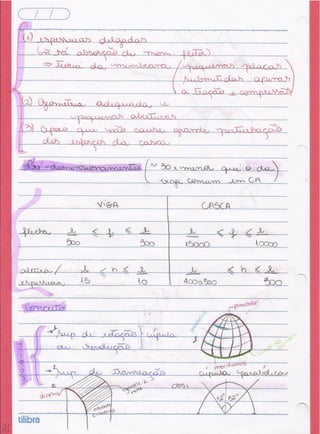 (1) espessuras delgadas
(só há absorção de mom. fletor)
⇒ teoria da membrana / pequenas placas
submetidas apenas
à tração e compressão
(2) Geometria adequada e
pequenas aberturas
(3) apoio que não cause grande perturbação
dos esforços da casca
Pré-dimensionamento (~ 30 x menor que o da
viga comum em CA)
VIGA CASCA
flecha l/500 ≤ f ≤ l/300 l/15000 ≤ f ≤ l/10000
altura/
espessura l/15 ≤ h ≤ l/10 ≤ h ≤ l/300
Conceito
paralelos
→ 1 Sup. de rotação cúpula
ou revolução
meridianos
→ 2 Sup. de translação cúpula parabólica
2 OBS:
diretriz
tilibra